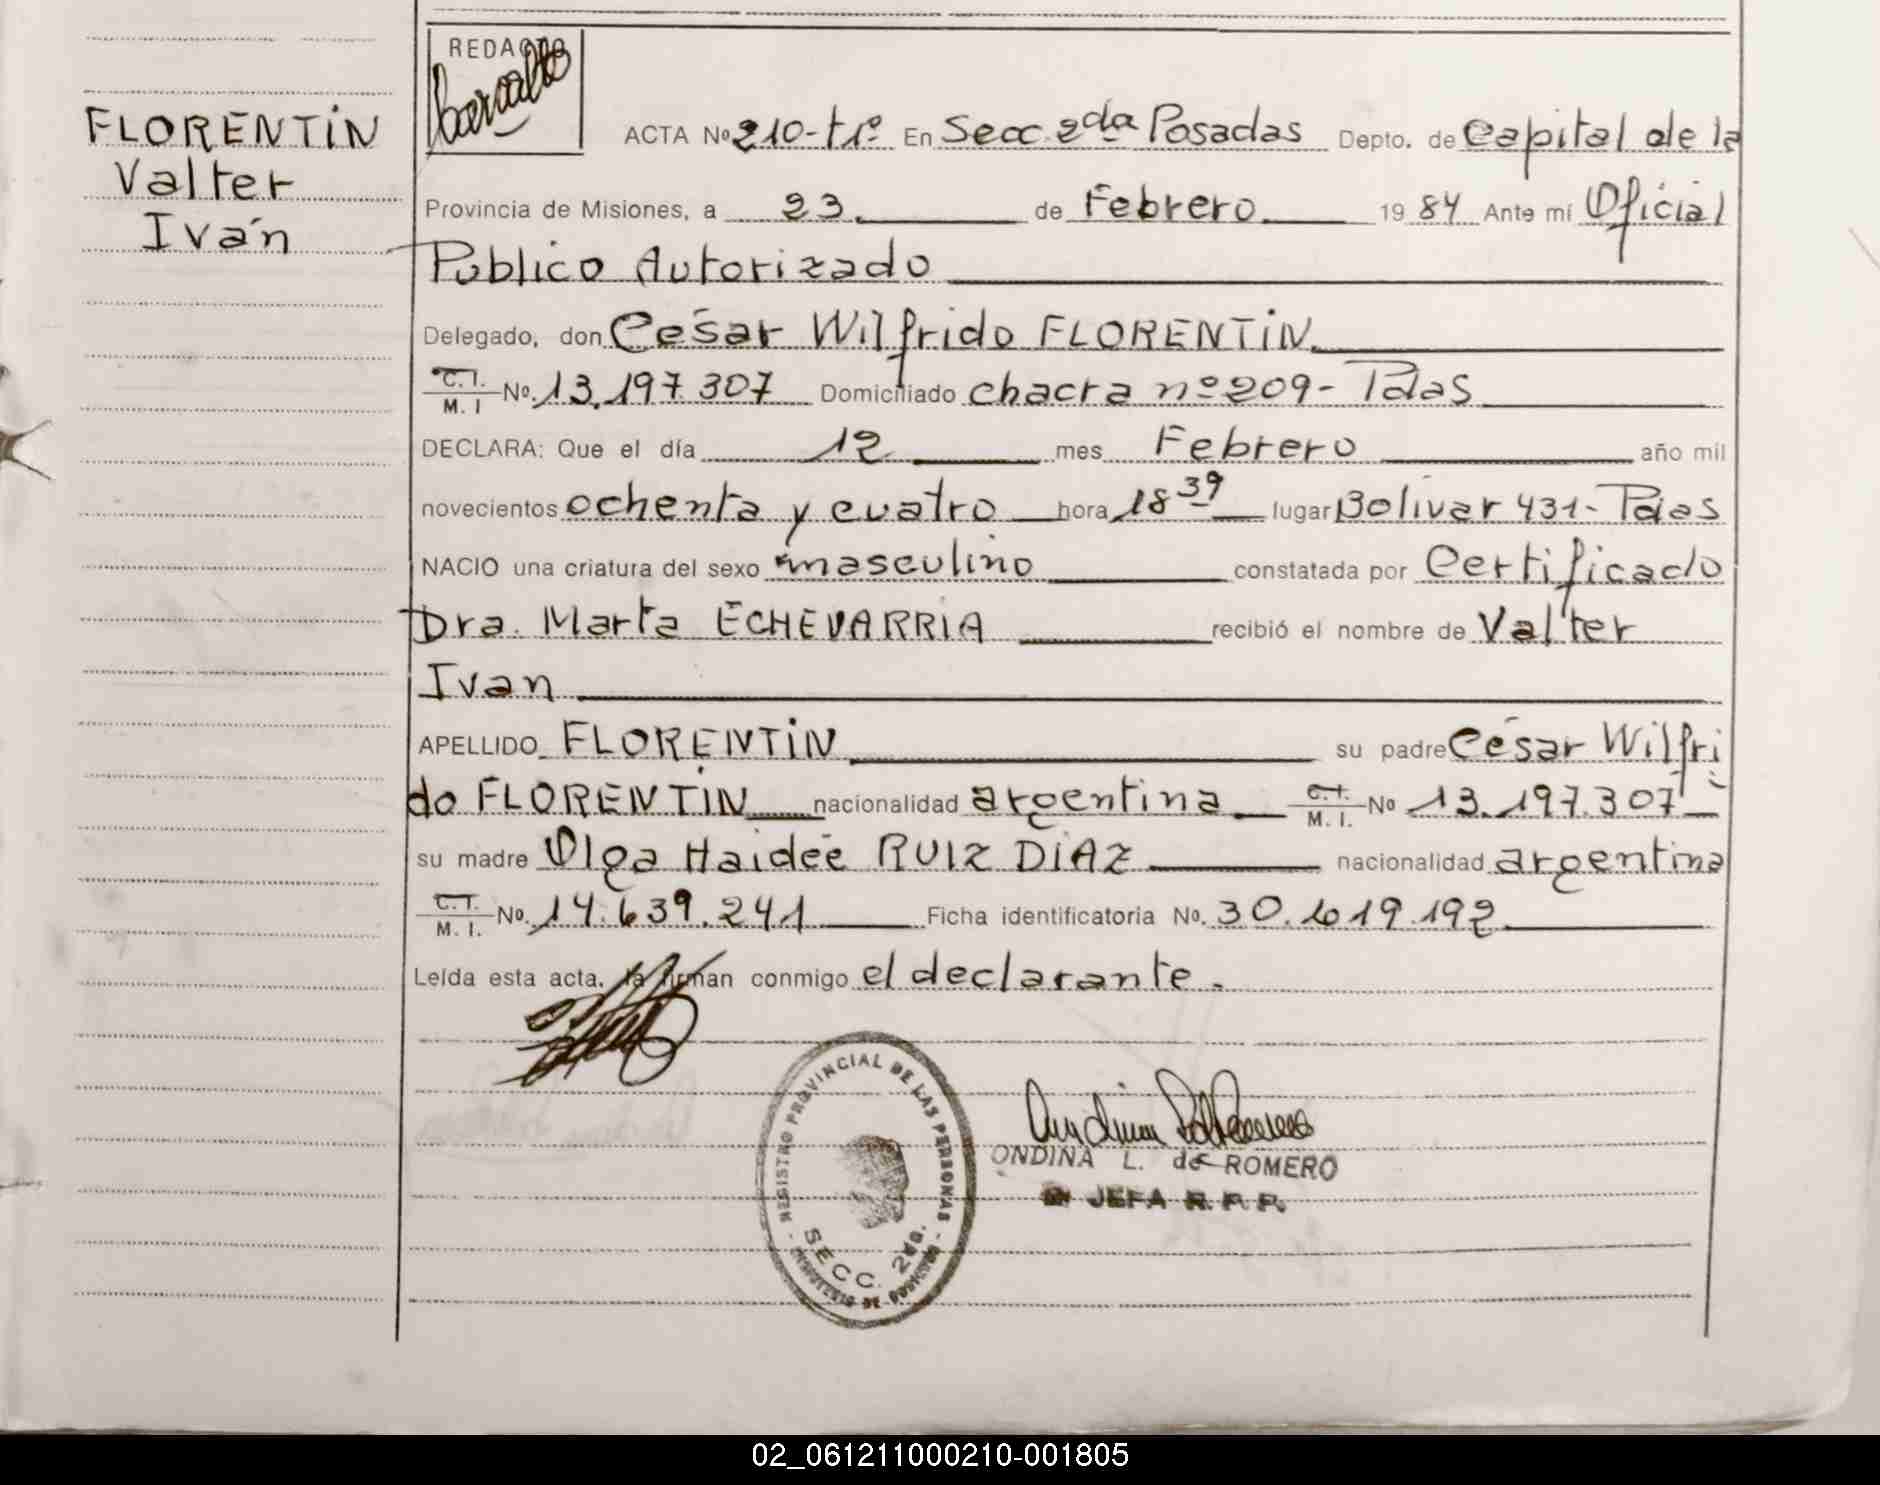 FLORENTIN
Valter
Iván
REDACTO
ACTA Nº 210-t1º En Secc 2da Posadas Depto. de Capital de la
Provincia de Misiones, a 23 de Febrero 1984 Ante mí Oficial
Publico Autorizado
Delegado, don César Wilfrido FLORENTIN
C.I. M.I No. 13.197.307 Domiciliado chacra nº 209- Pdas
DECLARA: Que el día 12 mes Febrero año mil
novecientos ochenta y cuatro hora 18 39 lugar Bolívar 431- Pdas
NACIO una criatura del sexo masculino constatada por Certificado
Dra. Marta ECHEVARRIA recibió el nombre de Valter
Ivan
APELLIDO FLORENTIN su padre César Wilfri
do FLORENTIN nacionalidad argentina C.I. M.I. No 13.197.307
su madre Olga Haideé RUIZ DIAZ nacionalidad argentina
C.I. M.I. No. 14.639.241 Ficha identificatoria No. 30.619.192
Leída esta acta, la firman conmigo el declarante.
REGISTRO PROVINCIAL DE LAS PERSONAS
SECC. 2da.
MINISTERIO DE GOBIERNO
ONDINA L. de ROMERO
JEFA R. P. P.
02_061211000210-001805